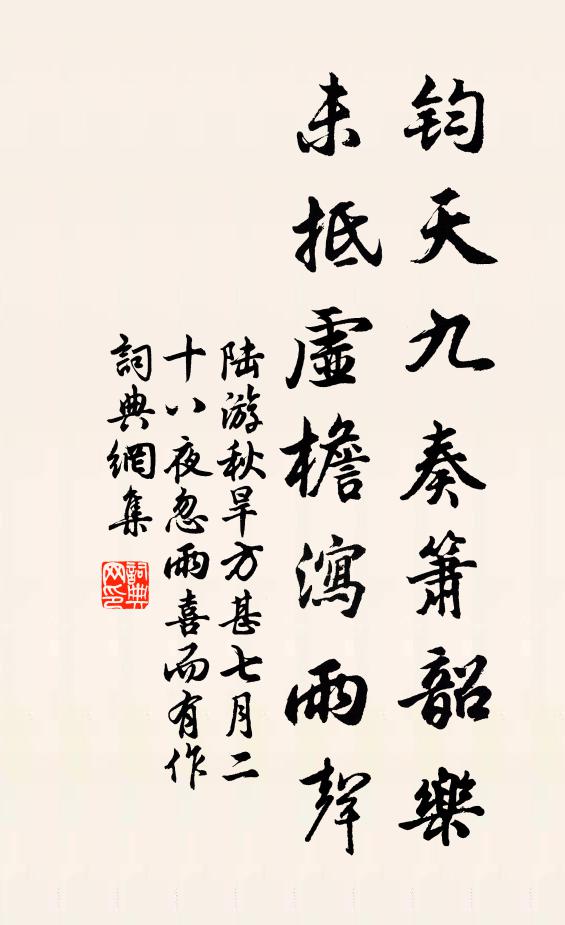 鈞天九奏簫韶樂
未抵虛檐瀉雨聲
陆游秋旱方甚七月二
十八夜忽雨喜而有作
詞典網集
詞典
网印